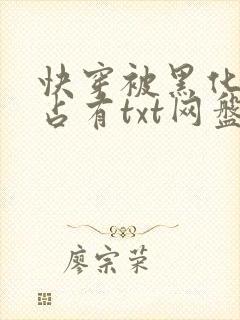 快穿被黑化
占有txt网盘
廖宗荣